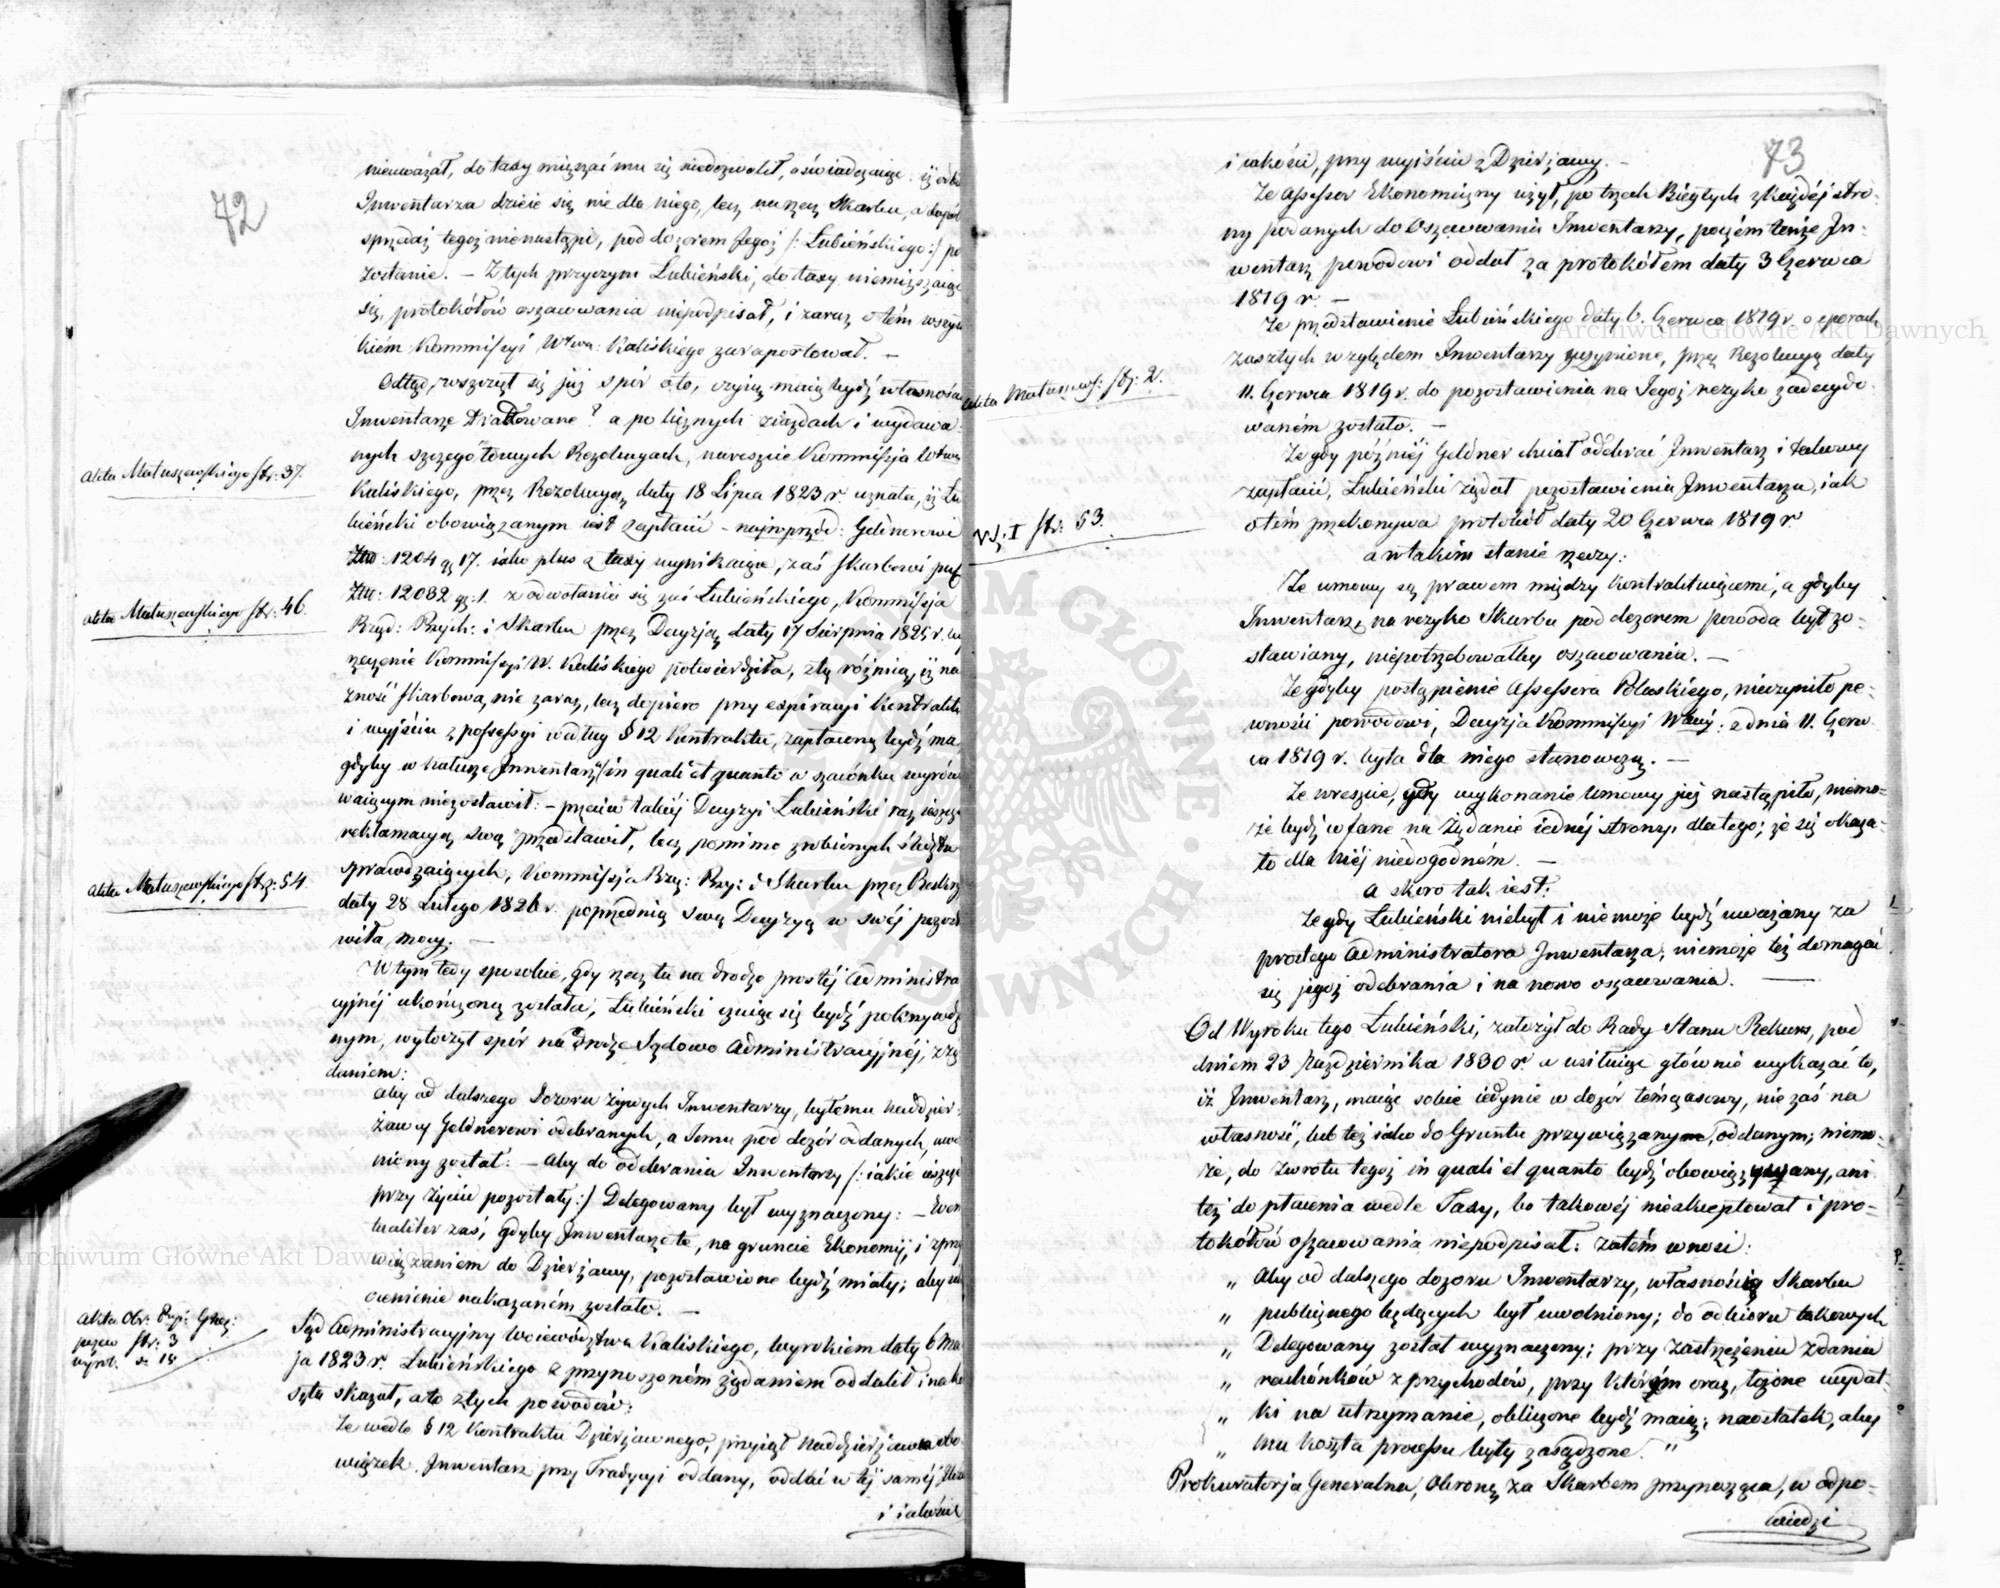 72
nieuważał, do taxy mięszać mu się niedozwolił, oświadczając: iż
Inwentarza dzieie się nie dla niego, lecz na rzecz Skarbu, a
sprzedaż tegoż nienastąpi, pod dozorem Jegoż /: Lubieńskiego :/ po
zostanie. – Z tych przyczyn Lubieński, do taxy niemięszaiąc
się, protokółów oszacowania niepodpisał, i zaraz o tém wszyst
kiém Kommissyi Wtwa: Kaliskiego zaraportował. –
Odtąd, wszczął się już spór oto, czyią maią bydź własnością
Inwentarze Tradowane? a po licznych ziazdach i wydawa
nych szczegółowych Rezolucyach, nareszcie Kommissja Wtwa
Kaliskiego, przez Rezolucyą daty 18 Lipca 1823 r uznała, iż Lu
bieński obowiązanym iest zapłacić – najwprzód: Geldnerowi
Złt: 1204 gr 17. iako plus z taxy wynikaiące, zaś Skarbowi pub
Złt: 12082 gr: 1. z odwołania się zaś Lubieńskiego, Kommissja
Rząd: Przych: i Skarbu przez Decyzją daty 17 Sierpnia 1825 r. wy
rzeczenie Kommissyi W. Kaliskiego potwierdziła, z tą różnicą, iż na
zność Skarbową, nie zaraz, lecz dopiero przy expiracyi Kontraktu
i wyjściu z possessyi według § 12 Kontraktu, zapłaconą bydź ma,
gdyby w naturze Inwentarz in quali et quanto a szacunku wyrów
waiącym niezostawił: – przeciw takiéj Decyzyi Lubieński raz ieszcze
reklamacyą swą przedstawił, lecz pomimo zrobionych śledztw
sprawdzaiących, Kommissja Rzą: Przy: i Skarbu przez Reskry
daty 28 Lutego 1826 r. poprzednią swą Decyzyą w swéj pozosta
wiła mocy. –
W tym tedy sposobie, gdy rzecz ta na drodze prostéj Administra
cyjnéj ukończoną została, Lubieński czuiąc się bydź pokrzywdzo
nym, wytoczył spór na drodze Sądowo Administracyjnéj, z żą
daniem:
Aby od dalszego Dozoru żywych Inwentarzy, byłemu Naddzier-
żawcy Geldnerowi odebranych, a Jemu pod dozór oddanych, uwol
niony został: – Aby do odebrania Inwentarzy /: iakie ieszcze
przy życiu pozostały :/ Delegowany był wyznaczony: – Ewen
tualiter zaś, gdyby Inwentarze te, na gruncie Ekonomij, i z przy
wiązaniem do Dzierżawy, pozostawione bydź miały; aby
ocenienie nakazaném zostało. –
Sąd Administracyjny Woiewództwa Kaliskiego, wyrokiem daty 6 Ma
ja 1823 r. Lubieńskiego z przynoszoném żądaniem oddalił i na ko
szta skazał, a to z tych powodów:
Że wedle § 12 Kontraktu Dzierżawnego, przyiął Naddzierżawca obo-
wiązek, Inwentarz przy Tradycyi oddany, oddać w téj saméj
i iakości
Akta Matuszewskiego Str: 37.
Akta Matuszewskiego Str: 46.
Akta Matuszewskiego Str: 54.
Akta Obr:
Str: 3
73
i iakości, przy wyjściu z Dzierżawy. –
Że Assessor Ekonomiczny użył, po trzech Biegłych z każdéj stro-
ny podanych do Oszacowania Inwentarzy, poczém tenże In-
wentarz powodowi oddał za protokółem daty 3 Czerwca
1819 r. –
Że przedstawienie Lubieńskiego daty 6. Czerwca 1819 r. o sporach
zaszłych względem Inwentarzy uczynione, przez Rezolucyą daty
11. Czerwca 1819 r. do pozostawienia na Jegoż rezyko zadecydo-
waném zostało. –
Że gdy późniéj Geldner chciał odebrać Inwentarz i takowy
zapłacić, Lubieński żądał pozostawienia Inwentarza, iak
o tém przekonywa protokół daty 20 Czerwca 1819 r
a w takim stanie rzeczy:
Że umowy są prawem między Kontraktuiącemi, a gdyby
Inwentarz, na rezyko Skarbu pod dozorem powoda był zo-
stawiany, niepotrzebowałby oszacowania. –
Że gdyby postąpienie Assessora Poluskiego, nieczyniło pe-
wności powodowi, Decyzja Kommissyi z dnia 11. Czerw-
ca 1819 r. była dla niego stanowczą. –
Że wreszcie, gdy wykonanie Umowy już nastąpiło, niemo-
że bydź wfane na Żądanie iednéj strony, dlatego; że się okaza-
ło dla niéj niedogodném. –
A skoro tak iest:
Że gdy Lubieński niebył i niemoże bydź uważany za
prostego Administratora Inwentarza, niemoże też domagać
się jegoż odebrania i na nowo oszacowania. –
Od Wyroku tego Lubieński, założył do Rady Stanu Rekurs, pod
dniem 23 Października 1830 r. a usiłuiąc głównie wykazać to,
iż Inwentarz, maiąc sobie iedynie w dozór témczasowy, nie zaś na
własność, lub też iako do Gruntu przywiązanym, oddanym; niemo-
że, do zwrotu tegoż in quali et quanto bydź obowiązywany, ani
też do płacenia wedle Taxy, bo takowéj nieakceptował i pro-
tokółów oszacowania niepodpisał: zatém wnosi:
„ Aby od dalszego dozoru Inwentarzy, własnością Skarbu
„ publicznego będących był uwolniony; do odbioru takowych
„ Delegowany został wyznaczony; przy zastrzeżeniu zdania
„ rachónków z przychodów, przy którém oraz, łożone wydat-
„ ki na utrzymanie, obliczone bydź maią; naostatek, aby
„ mu koszta processu były zasądzone. "
Prokuratorja Generalna, Obronę za Skarbem przynosząca, w odpo-
wiedzi
Akta Matuszews: Str: 2.
Str: 53.
Archiwum Główne Akt Dawnych
Archiwum Główne Akt Dawnych